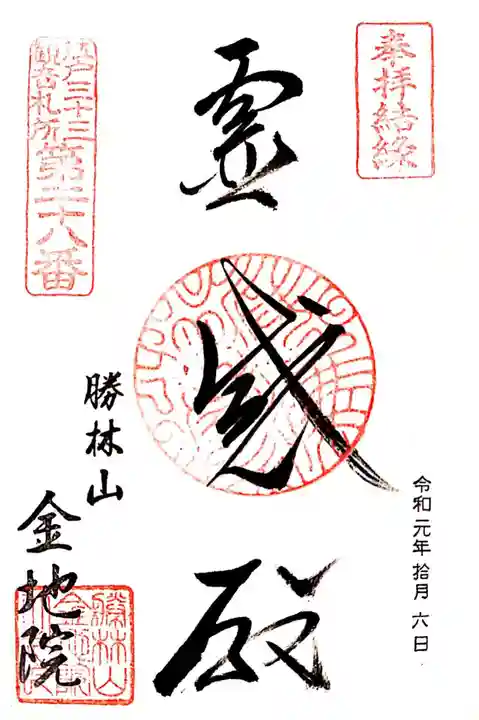 奉拝結縁
令和元年拾月六日
霊感殿
勝林山
金地院
江戸三十三
観音札所
第二十八番
勝林山
金地院